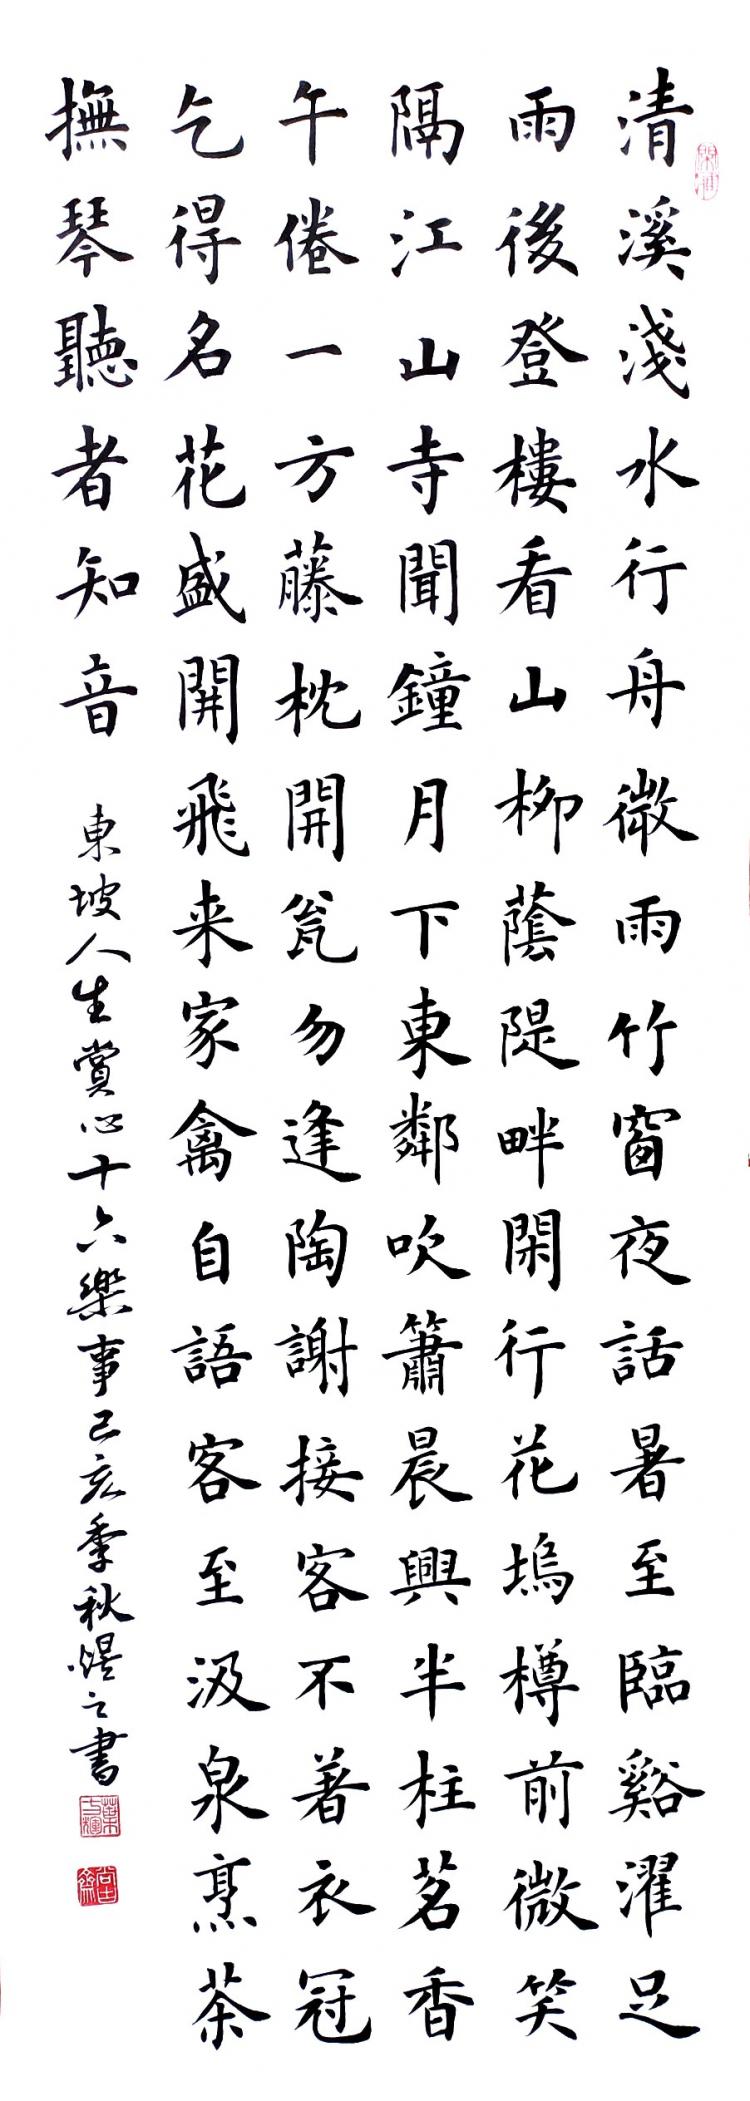 清溪淺水行舟微雨竹窗夜話暑至臨谿濯足
雨後登樓看山柳蔭隄畔閑行花塢樽前微笑
隔江山寺聞鐘月下東鄰吹簫晨興半柱茗香
午倦一方藤枕開瓮勿逢陶謝接客不著衣冠
乞得名花盛開飛来家禽自語客至汲泉烹茶
撫琴聽者知音
東坡人生賞心十六樂事己亥季秋煜之書
尚古齋